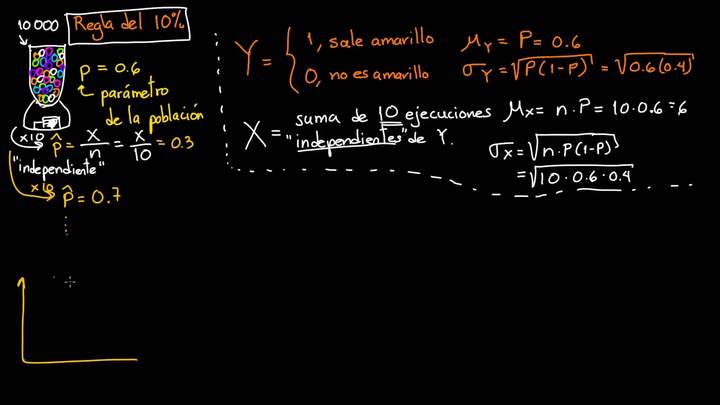 10 000
Regla del 10%
p = 0.6
parámetro
de la población
x10
p̂ = X/n = X/10 = 0.3
"independiente"
x10
p̂ = 0.7
Y = { 1, sale amarillo
0, no es amarillo
μ_Y = P = 0.6
σ_Y = √P(1-P) = √0.6(0.4)
X = suma de 10 ejecuciones
"independientes" de Y.
μ_X = n · P = 10 · 0.6 = 6
σ_X = √n · P(1-P)
= √10 · 0.6 · 0.4